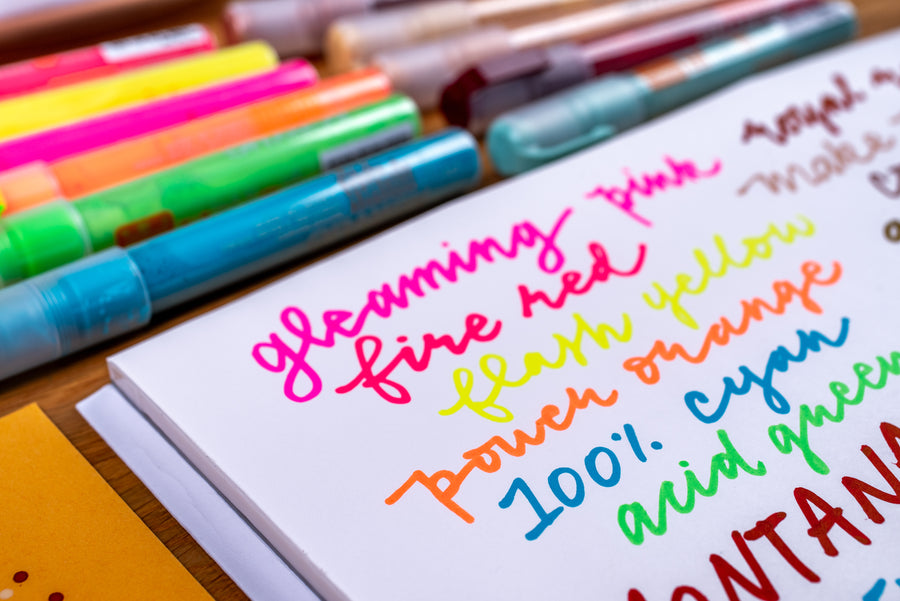 gleaming pink
fire red
flash yellow
power orange
100% cyan
acid green
royal
make
MONTANA